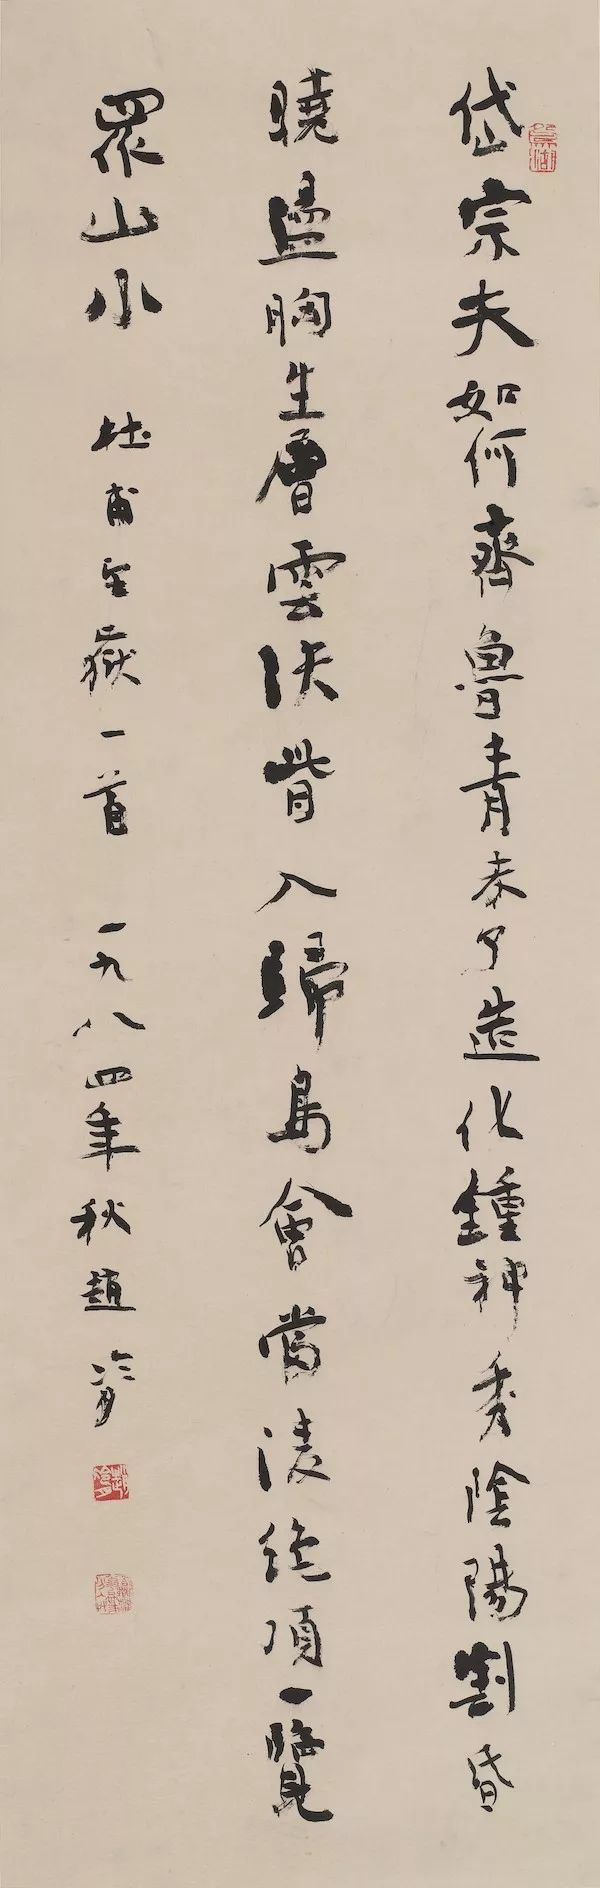 岱宗夫如何齊魯青未了造化鍾神秀陰陽割昏
曉盪胸生層雲決眥入歸鳥會當凌絕頂一覽
眾山小
杜甫望嶽一首 一九八四年秋趙冷月